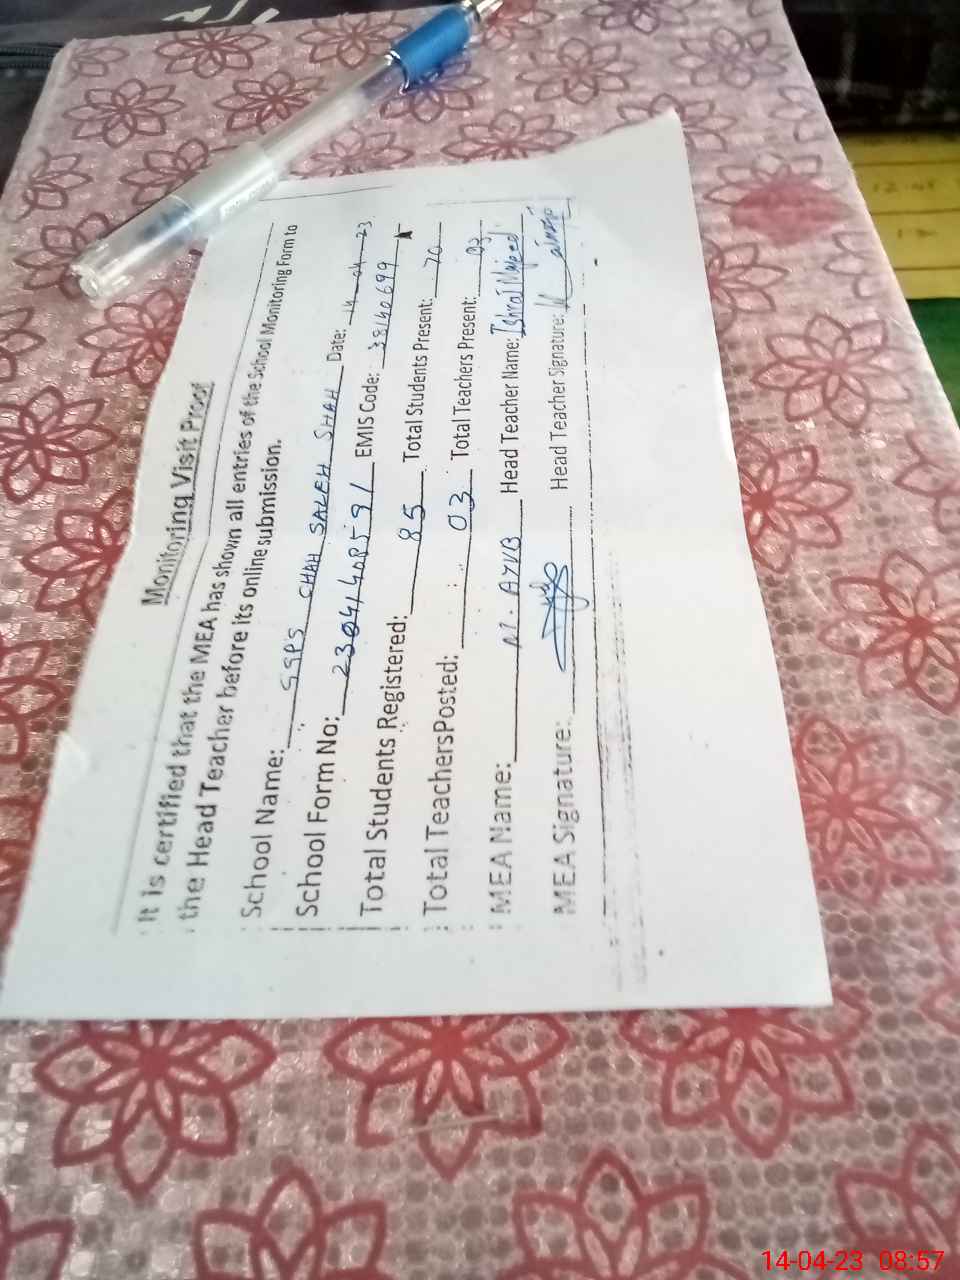 Monitoring Visit Proof
It is certified that the MEA has shown all entries of the School Monitoring Form to
the Head Teacher before its online submission.
School Name: GGPS SHAH SALEH SHAH Date: 14-04-23
School Form No: 23041408591 EMIS Code: 38140699
Total Students Registered: 85 Total Students Present: 70
Total Teachers Posted: 03 Total Teachers Present: 03
MEA Name: M. AYUB Head Teacher Name: Ishrat Majeed
MEA Signature: Head Teacher Signature:
14-04-23 08:57